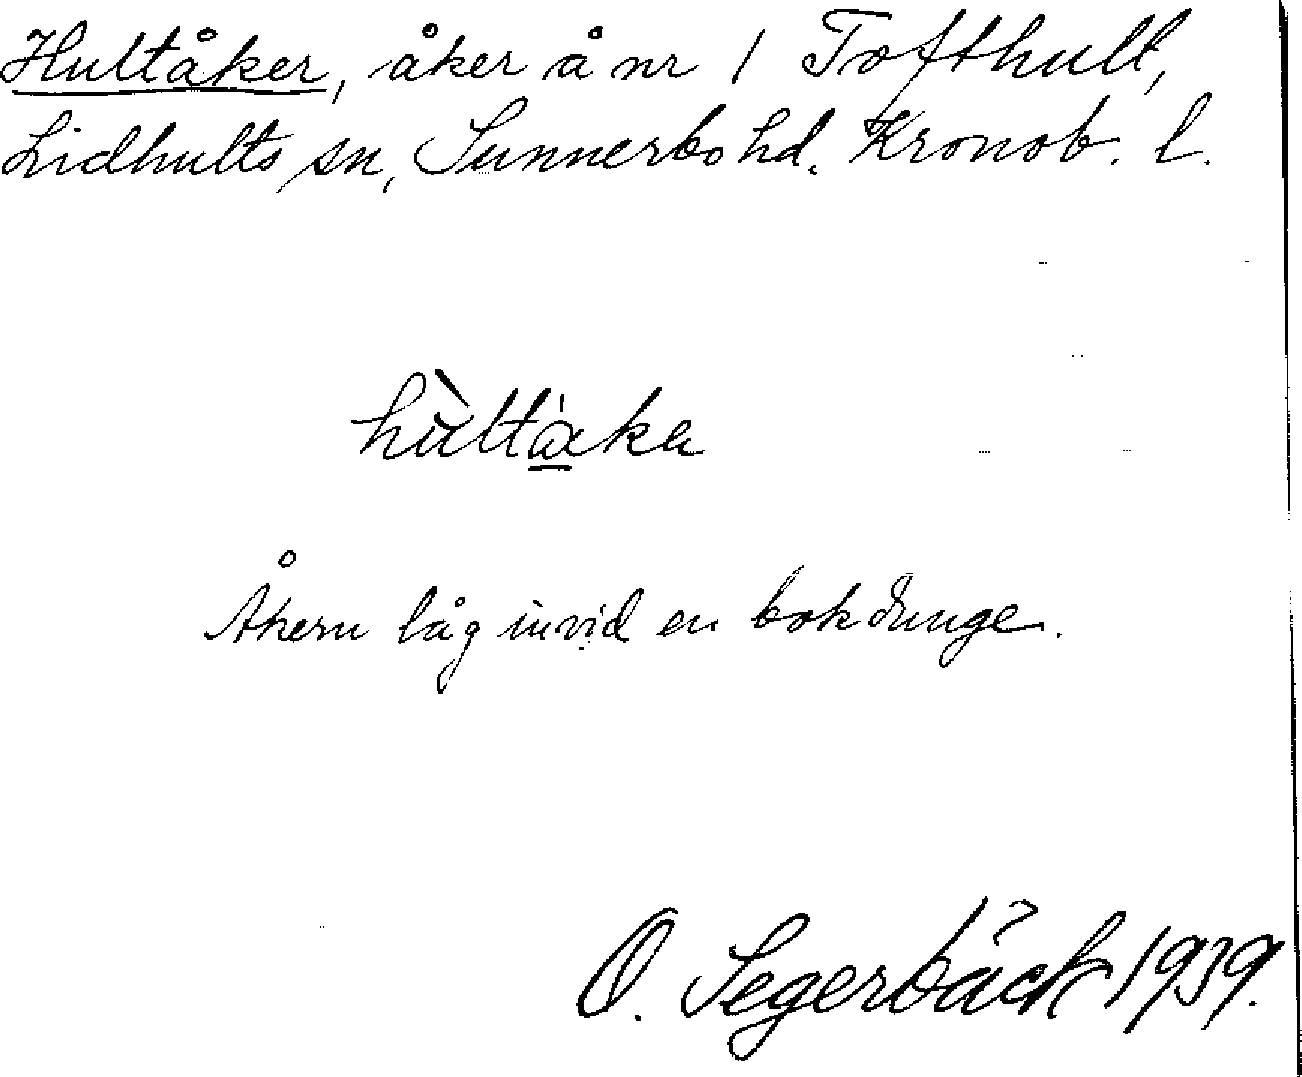 Hultåker, åker å nr 1 Tofthult,
Lidhults sn, Sunnerbo hd. Kronob. l.
hùltàka
Åkern låg invid en bokdunge.
O. Segerbäck 1939.